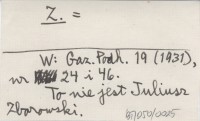 Z. =
W: Gaz. Podh. 19 (1931),
nr 24 i 46.
To nie jest Juliusz
Zborowski.